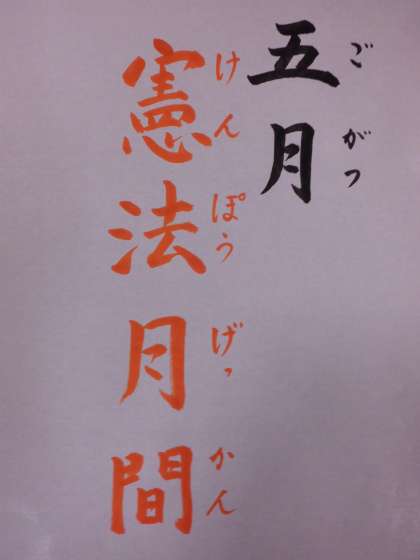 五月
ごがつ
憲法月間
けんぽうげっかん